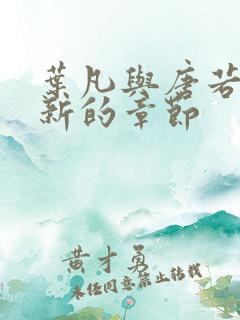 葉凡與唐若
新的章節
黃才勇
未經同意禁止轉載